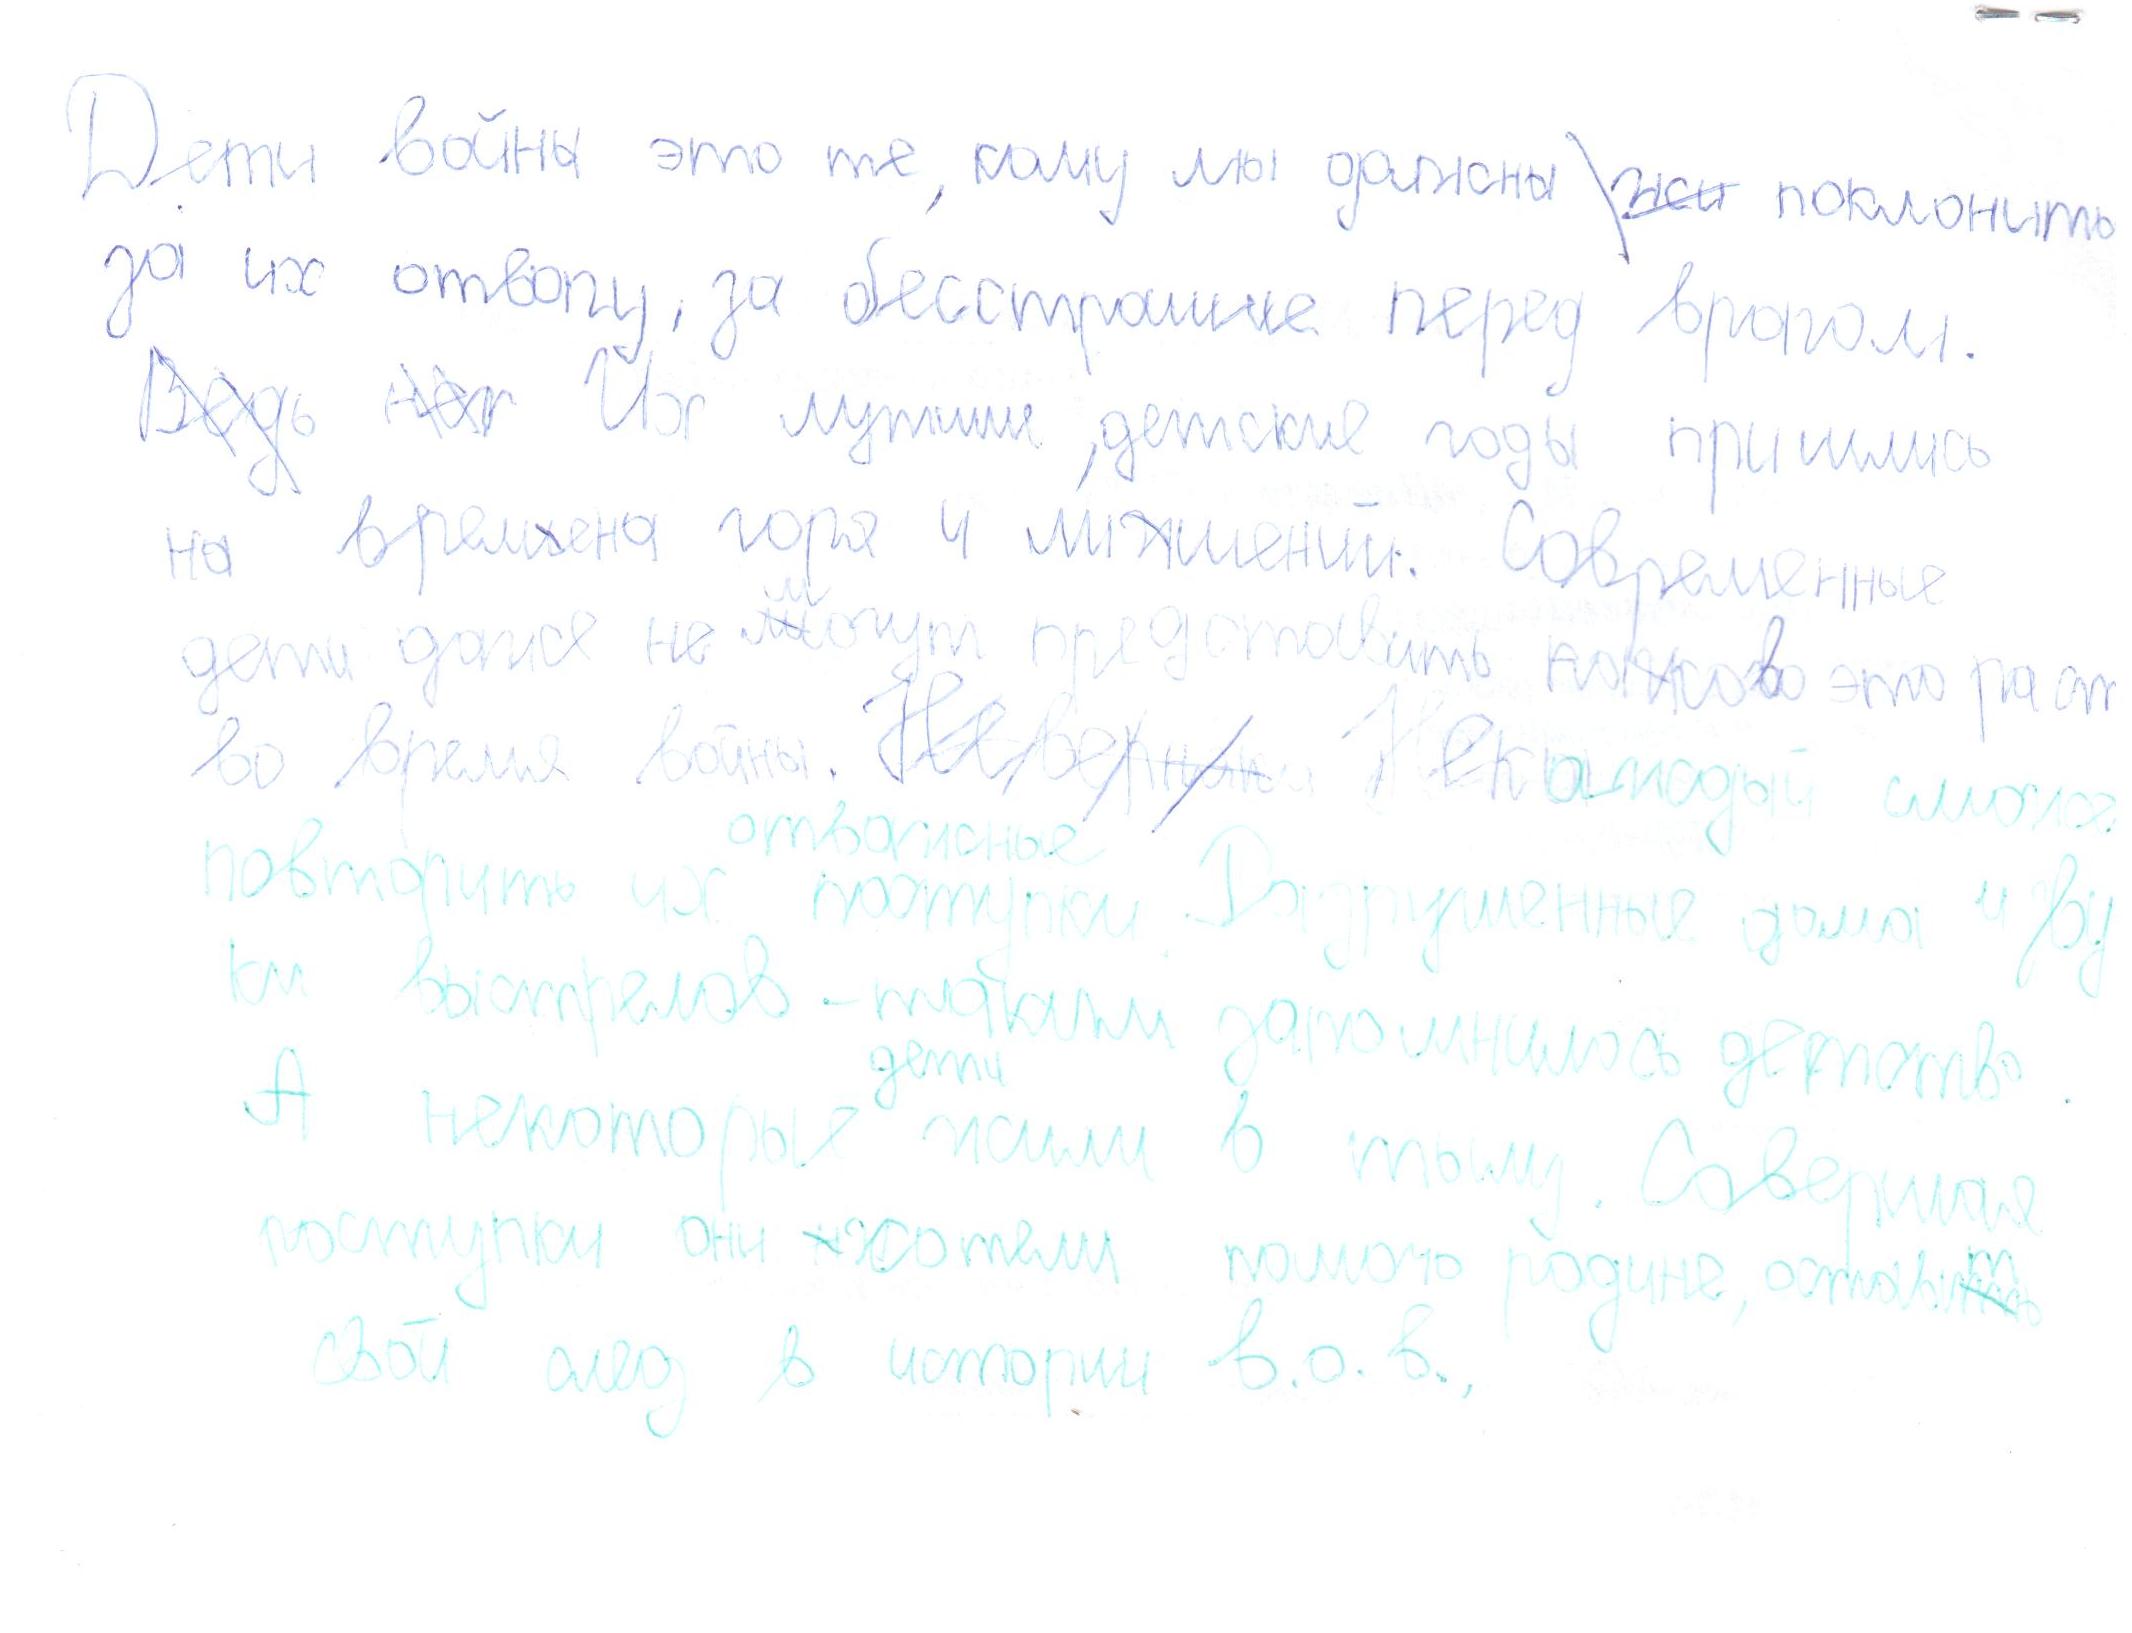 Дети войны это те, кому мы должны поклонить
за их отвагу, за бесстрашие перед врагом.
Ведь нет Их лутшие, детские годы пришлись
на времена горя и лишений. Современные
дети даже не могут представить каково это раст
во время войны. Не каждый сможе
повторить их отважные поступки. Разрушенные дома и зву
ки выстрелов - таким запомнилось детство.
А некоторые дети жили в тылу. Совершая
поступки они хотели помочь родине, оставить
свой след в истории в.о.в.,